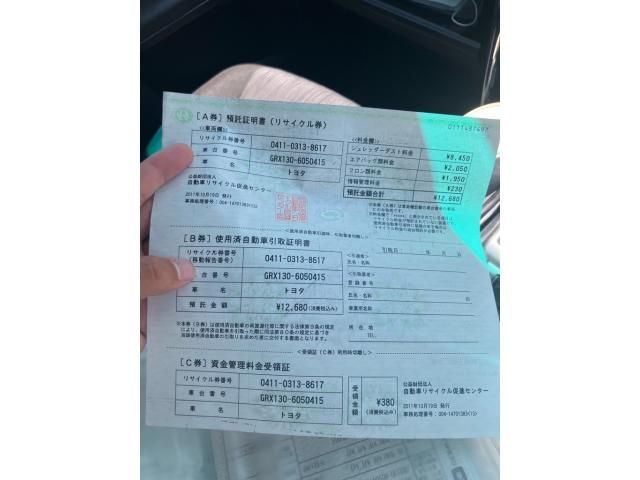 [A券] 預託証明書(リサイクル券)
0111497697
<<車両欄>>
リサイクル券番号 0411-0313-8617
車台番号 GRX130-6050415
車名 トヨタ
公益財団法人
自動車リサイクル促進センター
2011年10月19日 発行
<<料金欄>>
シュレッダーダスト料金 ¥8,450
エアバッグ類料金 ¥2,050
フロン類料金 ¥1,950
情報管理料金 ¥230
預託金額合計 ¥12,680
[B券] 使用済自動車引取証明書
引取日 年 月 日
リサイクル券番号
(移動報告番号) 0411-0313-8617
台番号 GRX130-6050415
車名 トヨタ
預託金額 ¥12,680(消費税込み)
氏名・名称
<引取業者>
登録番号
氏名・名称
事業所名称
所在地
<受領証(C券)利用時切離し>
[C券] 資金管理料金受領証
リサイクル券番号 0411-0313-8617
車台番号 GRX130-6050415
車名 トヨタ
受領金額 ¥380
(消費税込み)
公益財団法人
自動車リサイクル促進センター
2011年10月19日 発行